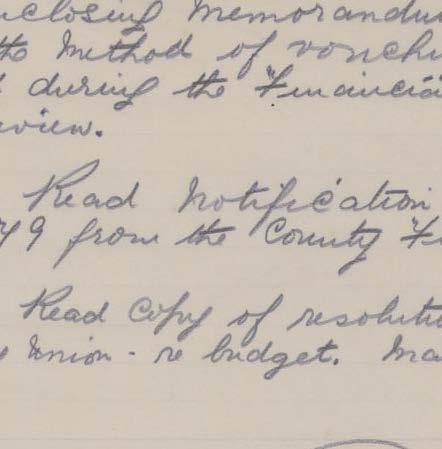 nclosing Memorandu
the Method of vouchi
d during the Financia
eview.
Read Notification
49 from the County Fi
Read Copy of resoluti
Union - re budget. Ma